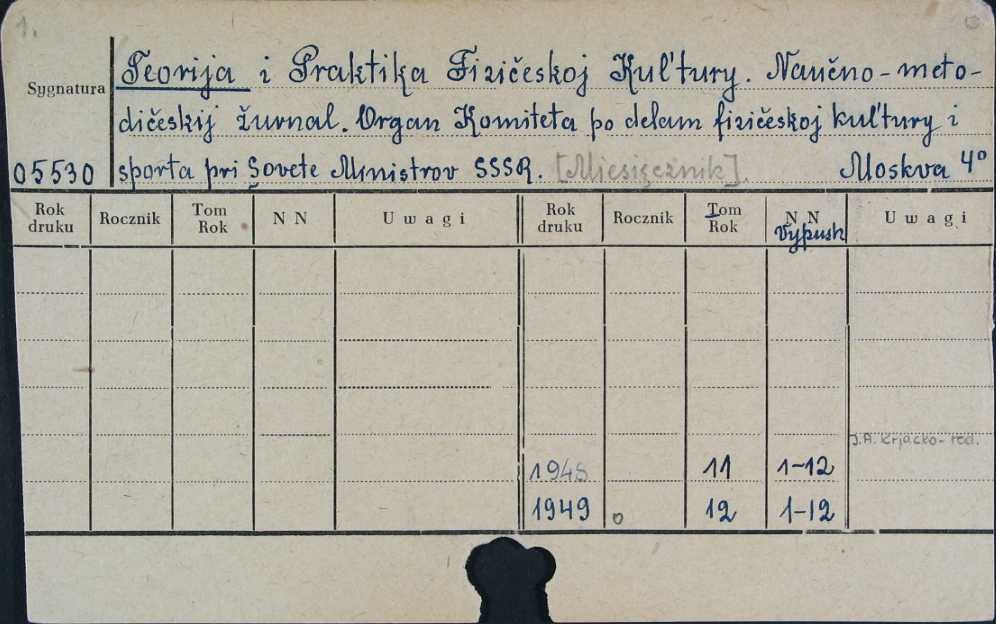 1.
Teorija i Praktika Fizičeskoj Kul'tury. Naučno-meto-
Sygnatura
dičeskij žurnal. Organ Komiteta po delam fizičeskoj kul'tury i
05530 sporta pri Sovete Ministrov SSSR. [Miesięcznik]. Moskva 4º
Rok druku Rocznik Tom Rok N N Uwagi Rok druku Rocznik Tom Rok N N Vypusk Uwagi
J.A. Krjačko-red.
1948 11 1-12
1949 o 12 1-12